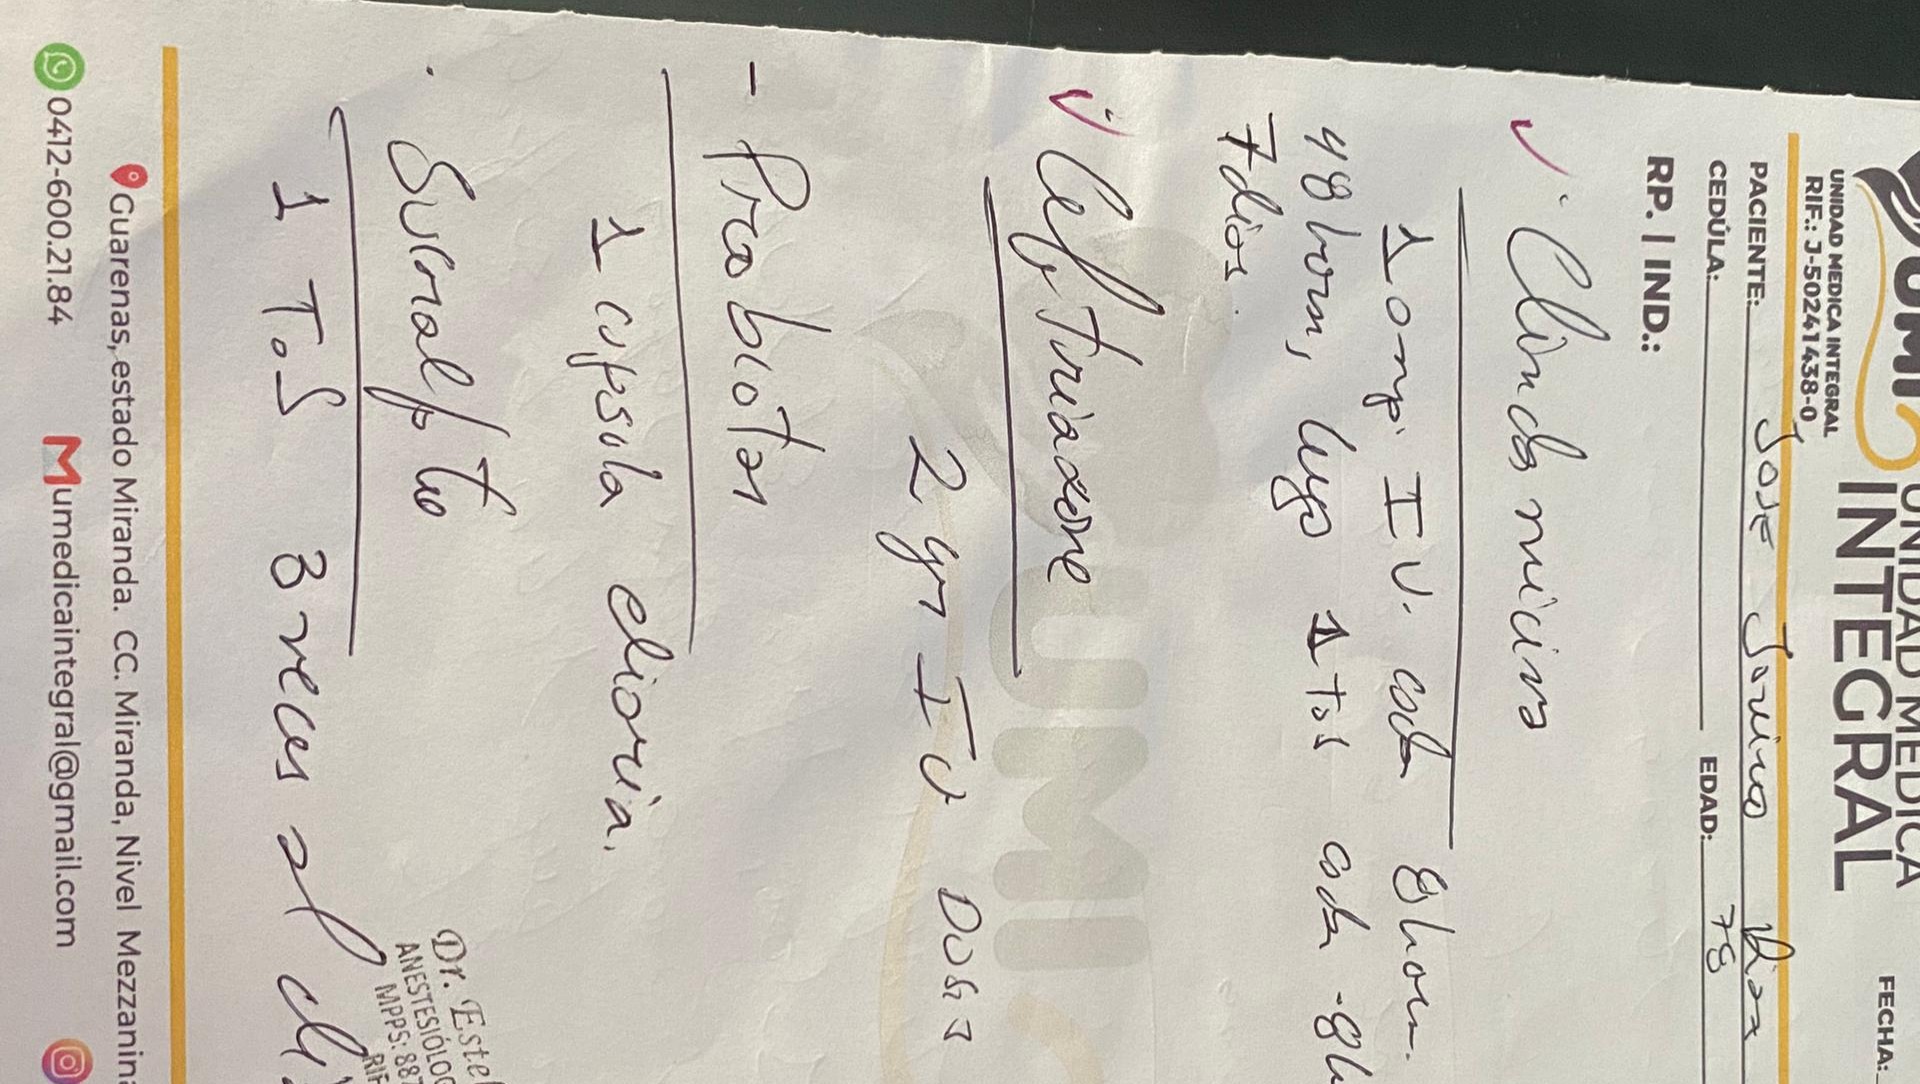 UMI
UNIDAD MEDICA
INTEGRAL
UNIDAD MEDICA INTEGRAL
RIF.: J-50241438-0
FECHA:
PACIENTE: Jose
CEDÚLA: EDAD: 78
RP. | IND.:
Clindamicina
1 amp. I V. cada 8 horas.
48 horas, luego 1 tos cada 8h
7 dias.
Ceftriaxone
2 gr IV
- Probiotar
1 capsula diaria.
1 T.S 3 veces al
Dr. Estel
ANESTESIÓLOG
MPPS: 887
RIF
Guarenas, estado Miranda. CC. Miranda, Nivel Mezzanina
0412-600.21.84 umedicaintegral@gmail.com